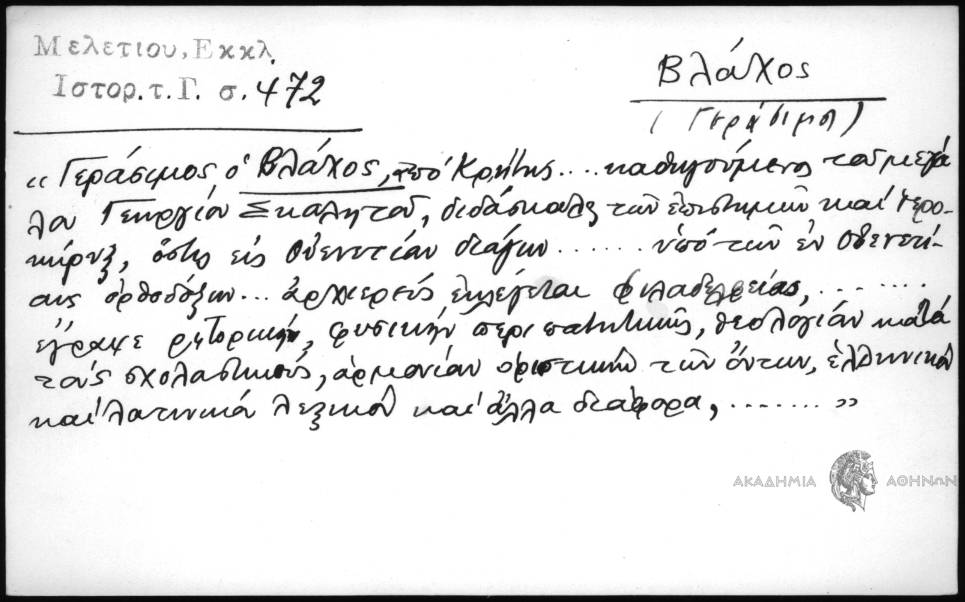 Μελετίου, Εκκλ.
Ιστορ. τ. Γ. σ. 472
Βλάχος
(Γεράσιμος)
„Γεράσιμος ὁ Βλάχος, ἀπό Κρήτης.... καθηγούμενος τοῦ μεγά
λου Γεωργίου Σκαλητοῦ, διδάσκαλος τῶν ἐπιστημῶν καί ἱερο-
κήρυξ, ὅστις εἰς Οὐενετίαν διάγων ...... ὑπό τῶν ἐν Οὐενετί-
αις ὀρθοδόξων... ἀρχιερεύς ἐκλέγεται Φιλαδελφείας, ........
ἔγραψε ρητορικήν, φυσικήν περιπατητικῆς, θεολογίαν κατά
τούς σχολαστικούς, ἁρμονίαν ὁριστικήν τῶν ὄντων, ἑλληνικόν
καί λατινικόν λεξικόν καί ἄλλα διάφορα, ........ „
ΑΚΑΔΗΜΙΑ ΑΘΗΝΩΝ